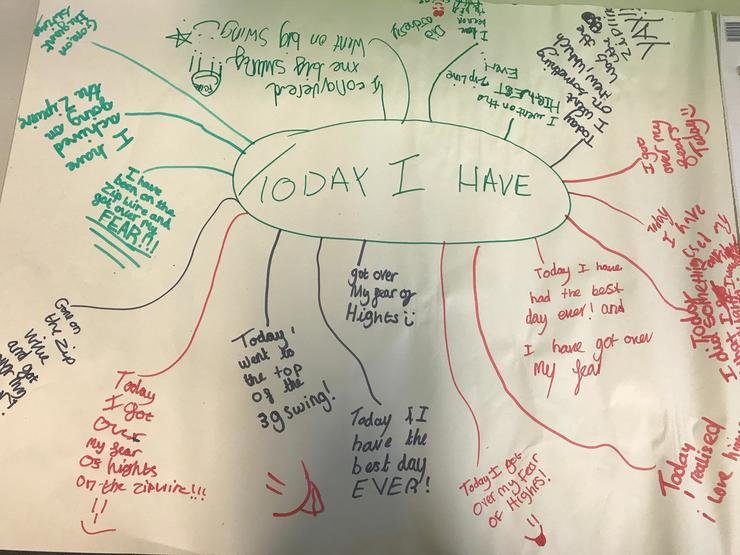 TODAY I HAVE
Gone on
the giant
swing
I have
achived
going on
the zipwire
I have
been on the
zip wire and
got over my
FEAR!!!
Gone on
the zip
wire
and got
Today
I got
over
my fear
of hights
on the zipwire!!!
Today I
went to
the top
of the
3g swing!
Today I
have the
best day
EVER!
got over
My fear of
Hights
Today I got
over my fear
of Highrs!
Today I have
had the best
day ever! and
I have got over
My fear
Today
i realised
i love
Today
I did
Today
I HAVE
I goo
over my
fear
Today
Today
I went
on something
new, which
was the
I went on the
HIGHEST zip line
Ever!
I conquered
the big swing
Went on big swing